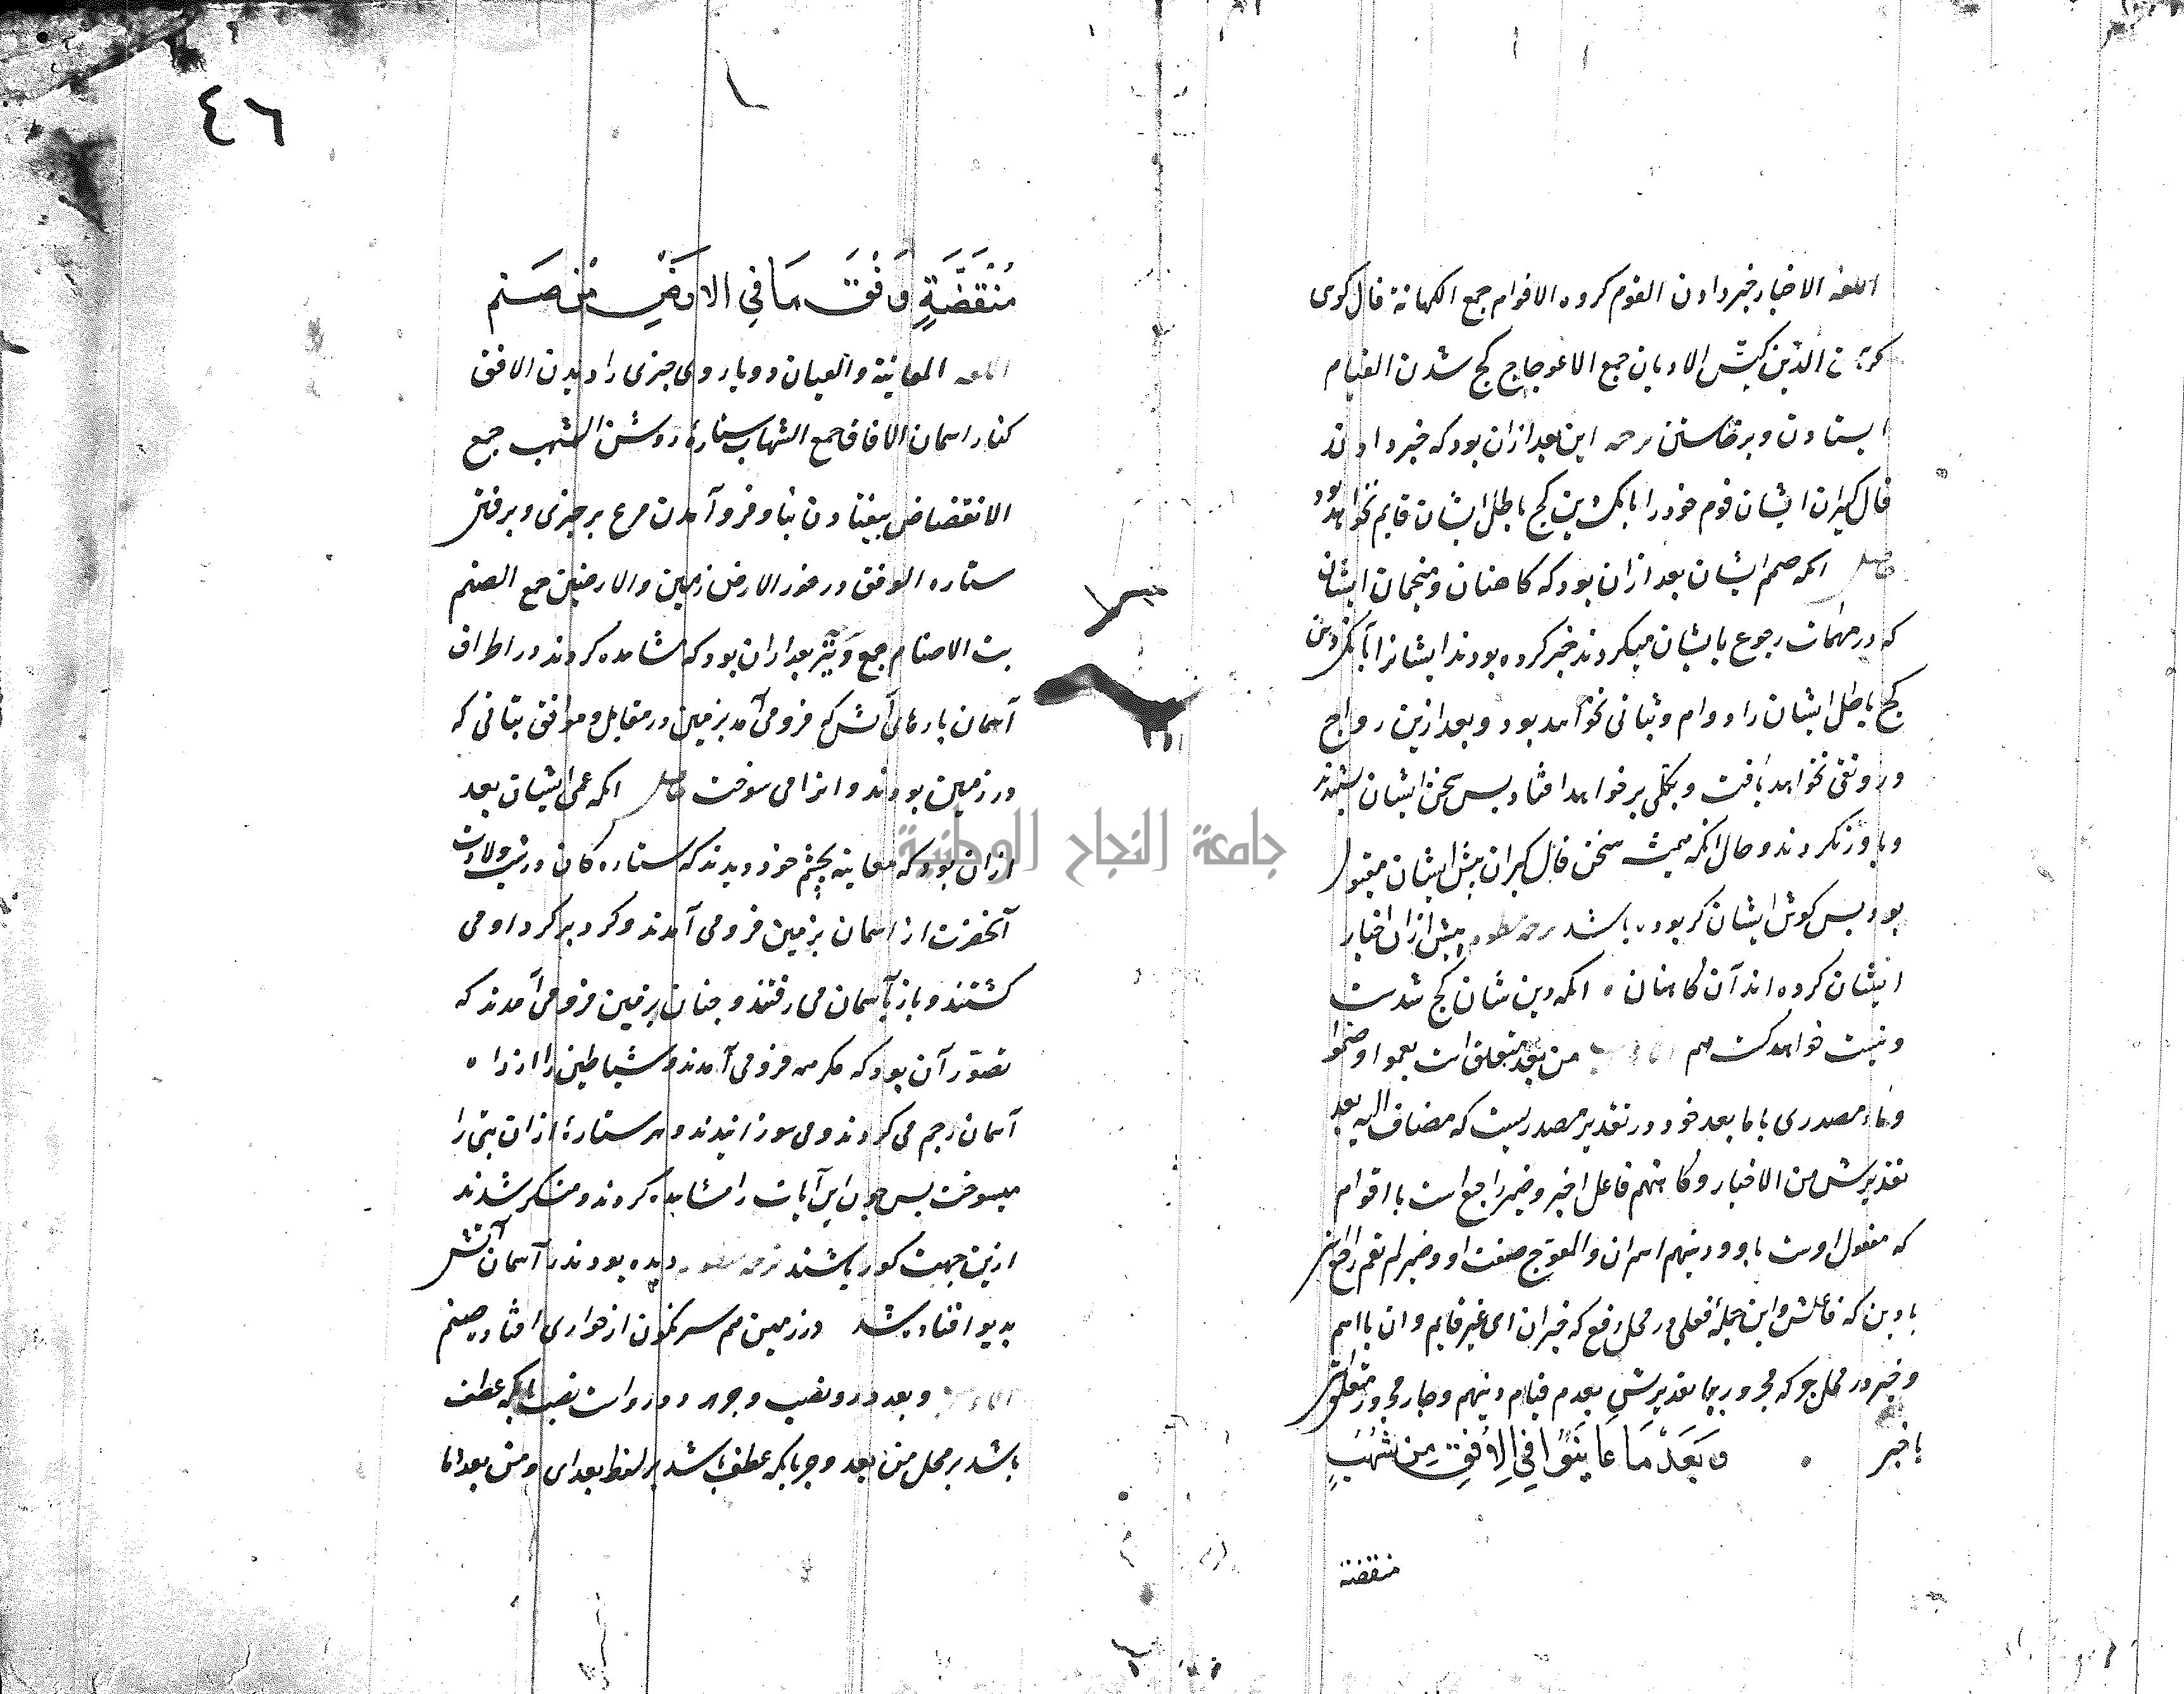 اللغه الاخبار خبر دادن القوم كروه الاقوام جمع الكهانة فال كوى
كردن الدّين كيش الاديان جمع الاعوجاج كج شدن القيام
ايستادن و برخاستن ترجمه اين بعد ازان بود كه خبر دادند
فال كيران ايشان قوم خود را بانك دين كج باطل ايشان قايم نخواهد بود
حاصل انكه صمم ايشان بعد ازان بود كه كاهنان و منجمان ايشان
كه در مهمات رجوع بايشان ميكردند خبر كرده بودند ايشانرا بانك دين
كج باطل ايشان را دوام و ثباتى نخواهد بود و بعد ازين رواج
و رونقى نخواهد يافت و بكلى بر خواهد افتاد پس سخن ايشان نشنيدند
و باور نكردند و حال انكه هميشه سخن فال كيران پيش ايشان مقبول
بود پس كوش ايشان كر بوده باشد ترجمه منظومه پيش ازان اخبار
ايشان كرده اند آن كاهنان ه انكه دين شان كج شدست
و نيست خواهد كشت هم الاعراب من بعد متعلق است بعموا و صمّوا
و ماء مصدرى با ما بعد خود در تقدير مصدريست كه مضاف اليه بعد
تقديرش من الاخبار و كاهنهم فاعل اخبر و ضمير راجع است با اقوام
كه مفعول اوست با او و دينهم اسم ان و المعوّج صفت او و ضمير لم يقم راجع
با دين كه فاعلش و اين جملهٔ فعلى در محل رفع كه خبر ان اى غير قايم و ان با اسم
و خبر در محل جر كه مجرور بيا تقديرش بعدم قيام دينهم و جار مجرور متعلق
با خبر وَ بَعْدَ مَا عَايَنُوْا فِي الاُفْقِ مِنْ شُهُبٍ
منقضة
مُنْقَضَّةٍ وَفْقَ مَا فِي الاَرْضِ مِنْ صَنَمِ
اللغه المعاينة و العيان دوبار وى چيزى را ديدن الافق
كنار اسمان الافاق جمع الشهاب ستارهٔ روشن الشهب جمع
الانقضاض بيفتادن بنا و فرو آمدن مرغ بر چيزى و برفتن
ستاره الوفق در خور الارض زمين و الارضين جمع الصنم
بت الاصنام جمع وَنَيّر بعد ازان بود كه مشاهده كردند در اطراف
آسمان پارهاى آتش كه فرو مى آمد بزمين در مقابل و موافق بتانى كه
در زمين بودند و انرا مى سوخت حاصل انكه عمى ايشان بعد
ازان بود كه معاينه بچشم خود ديدند كه ستاره كان در شب ولادت
آنحضرت از اسمان بزمين فرو مى آمدند و كرد بر كرد او مى
كشتند و باز بآسمان مى رفتند و چنان بر زمين فرو مى آمدند كه
تصوّر آن بود كه مكر مه فرو مى آمدند و شياطين را از راه
آسمان رجم مى كردند و مى سوزانيدند و هر ستارهٔ ازان بتى را
ميسوخت پس چون اين آيات را مشاهده كردند و منكر شدند
ازين جهت كور باشند ترجمه منظومه ديده بودند در آسمان آتش
بديو افتاده شد در زمين هم سر نكون از خوارى افتاده صنم
الاعراب و بعد درو نصب و جر هر دو رواست نصب بانكه عطف
باشد بر محل من بعد و جر بانكه عطف باشد بر لفظ بعد اى و من بعد ما
٤٦
جامعة النجاح الوطنية